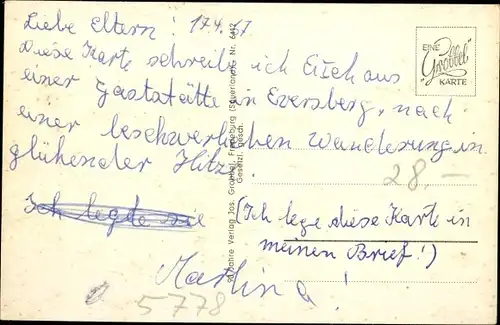 Liebe Eltern! 17.4.67
Diese Karte schreibe ich Euch aus
einer Gaststätte in Eversberg, nach
einer beschwerlichen Wanderung in
glühender Hitze.
Ich legte sie (Ich lege diese Karte in
meinen Brief!)
Martin!
EINE
Grobbel
KARTE
Jahre Verlag Jos. Grobbel, Fredeburg (Sauerland) Nr.
Gesetzl. gesch.
28.-
5778